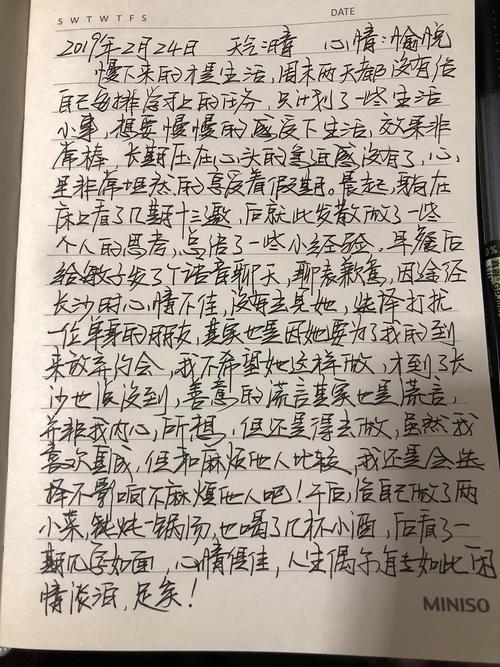 S M T W T F S DATE
2019年2月24日 天气:晴 心情:愉悦
慢下来的才是生活,周末两天都没有给
自己安排学习上的任务,只计划了一些生活
小事,想要慢慢的感受下生活,效果非
常棒。长期压在心头的急迫感没有了,心
里非常坦然的享受着假期。晨起,躺在
床上看了几期十三邀,后就此发散做了一些
个人的思考,总结了一些小经验。早餐后
给敏子发了个语音聊天,聊表歉意,因途经
长沙时心情不佳,没有去见她,选择打扰
一位单身的朋友,其实也是因她要为了我的到
来放弃约会,我不希望她这样做,才到了长
沙也说没到,善意的谎言其实也是谎言,
并非我内心所想,但还是得去做,虽然我
喜欢真诚,但和麻烦他人比较,我还是会选
择不影响不麻烦他人吧!午后,给自己做了两
小菜,炖一锅汤,也喝了几杯小酒,后看了一
期见字如面,心情俱佳,人生偶尔有去如此闲
情淡泊,足矣!
MINISO